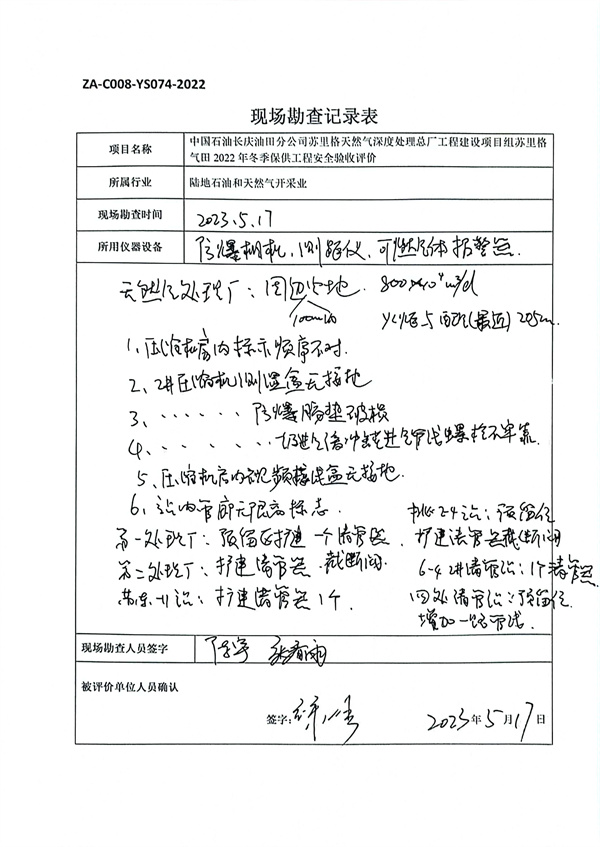 ZA-C008-YS074-2022
现场勘查记录表
项目名称
中国石油长庆油田分公司苏里格天然气深度处理总厂工程建设项目组苏里格
气田 2022 年冬季保供工程安全验收评价
所属行业
陆地石油和天然气开采业
现场勘查时间
2023.5.17
所用仪器设备
防爆相机、测距仪、可燃气体报警器.
天然气处理厂: 周边占地. 800×10⁴m³/d
火炬与(最近) 205m.
1、压缩机房内标示顺序不对.
2、2#压缩机 温盒无接地
3、...... 防爆胶垫破损
4、...... 进气管线螺栓不牢靠
5、压缩机房内视频接 盒无接地.
6、站内管廊无限高标志.
第一处理厂: 预留区扩建一个清管器
第二处理厂: 扩建清管器. 截断阀
苏东-11站: 扩建清管器1个
2-4站: 预留位
扩建清管器截断阀
6-4 清管站: 1个清管器
四处清管站: 预留位
增加一路管线.
现场勘查人员签字
被评价单位人员确认
签字:
2023年5月17日